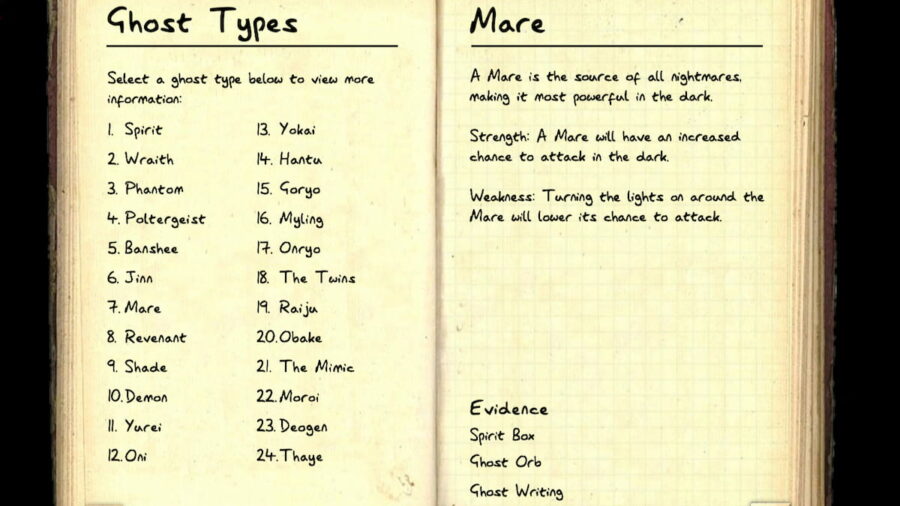 Ghost Types
Select a ghost type below to view more
information:
1. Spirit
2. Wraith
3. Phantom
4. Poltergeist
5. Banshee
6. Jinn
7. Mare
8. Revenant
9. Shade
10. Demon
11. Yurei
12. Oni
13. Yokai
14. Hantu
15. Goryo
16. Myling
17. Onryo
18. The Twins
19. Raiju
20. Obake
21. The Mimic
22. Moroi
23. Deogen
24. Thaye
Mare
A Mare is the source of all nightmares,
making it most powerful in the dark.
Strength: A Mare will have an increased
chance to attack in the dark.
Weakness: Turning the lights on around the
Mare will lower its chance to attack.
Evidence
Spirit Box
Ghost Orb
Ghost Writing